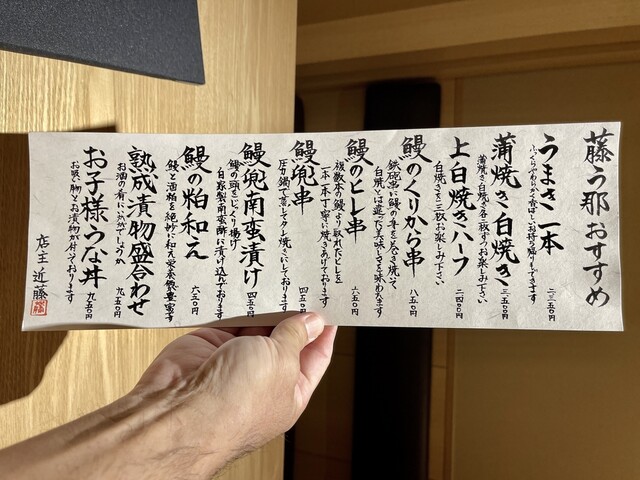 藤う那おすすめ
うまき一本
ふっくらやわらかく香ばしいお持ち帰りもできます
二二五〇円
蒲焼き白焼き
蒲焼き白焼き各二枚ずつお楽しみ下さい
三五〇〇円
上白焼きハーフ
白焼きを二枚お楽しみ下さい
二四〇〇円
鰻のくりから串
鉄砲串に鰻の身を巻き焼いて
白焼とは違った美味しさを味わえます
八五〇円
鰻のヒレ串
複数本の鰻より取れたヒレを
一本一本丁寧に焼きあげております
六五〇円
鰻兜串
圧力鍋で蒸してタレ焼きにしております
四五〇円
鰻兜南蛮漬け
鰻の頭をじっくり揚げ
自家製南蛮酢に漬け込んでおります
四五〇円
鰻の粕和え
鰻と酒粕を絶妙に和え栄養価豊富です
六五〇円
熟成漬物盛合わせ
お酒の肴に如何でしょうか
九五〇円
お子様うな丼
お吸い物とお漬物が付いております
九五〇円
店主 近藤